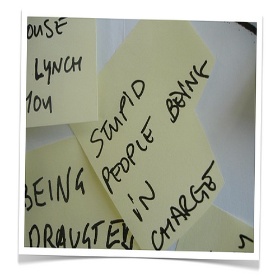 OUSE
LYNCH
YOU
STUPID
PEOPLE BEING
IN
CHARGE
BEING
DRAUGTED